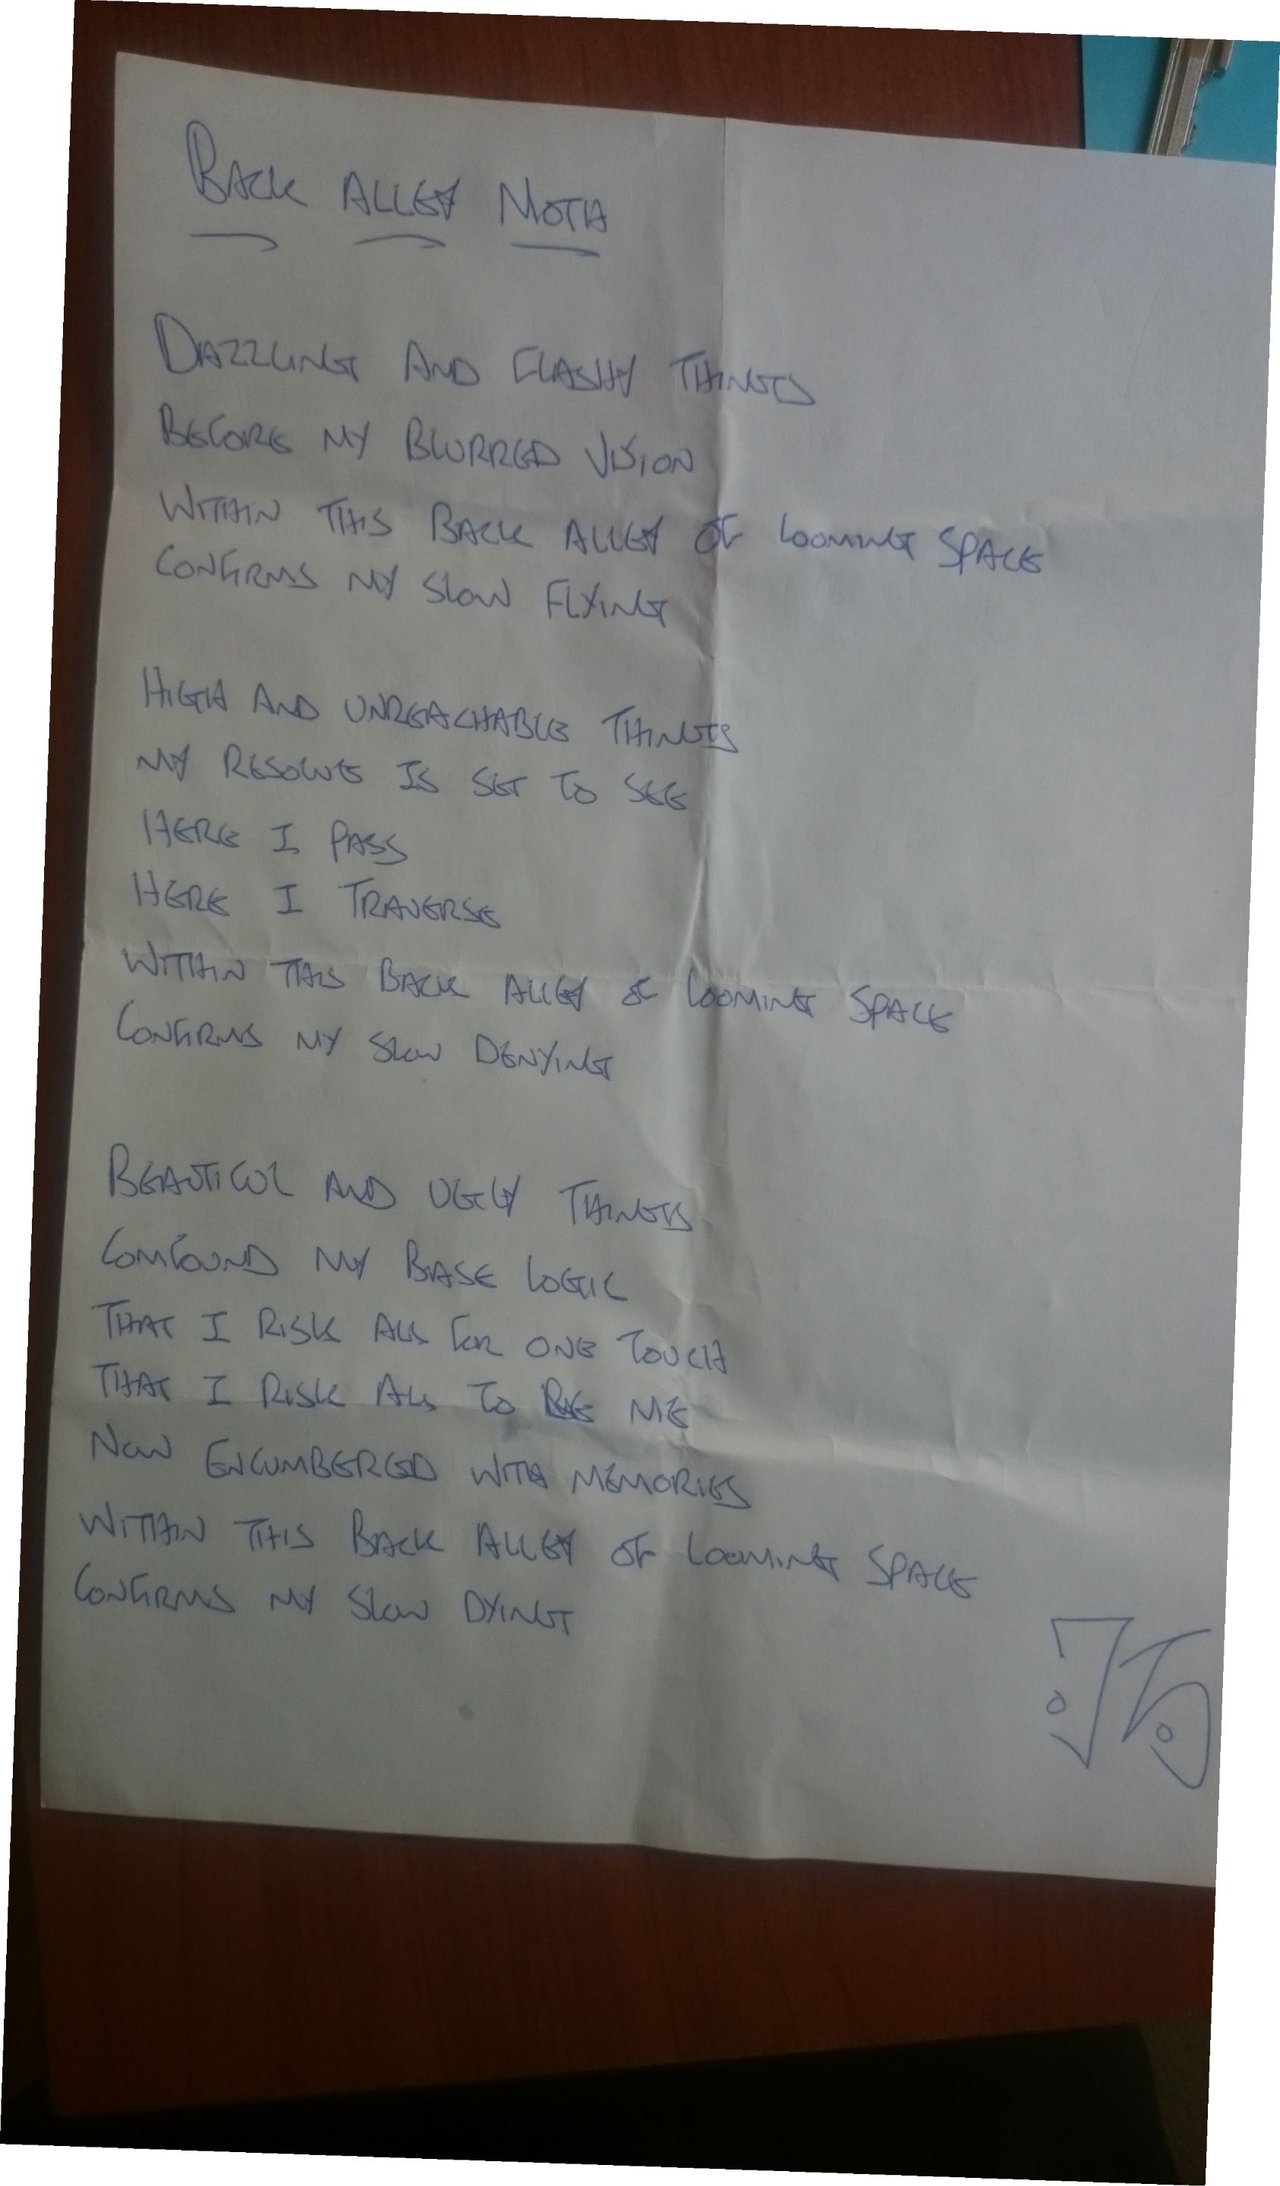 BACK ALLEY MOTH
DAZZLING AND FLASHY THINGS
BEFORE MY BLURRED VISION
WITHIN THIS BACK ALLEY OF LOOMING SPACE
CONFIRMS MY SLOW FLYING
HIGH AND UNREACHABLE THINGS
MY RESOLVE IS SET TO SEE
HERE I PASS
HERE I TRAVERSE
WITHIN THIS BACK ALLEY OF LOOMING SPACE
CONFIRMS MY SLOW DENYING
BEAUTIFUL AND UGLY THINGS
COMFOUND MY BASE LOGIC
THAT I RISK ALL FOR ONE TOUCH
THAT I RISK ALL TO BE ME
NOW ENCUMBERED WITH MEMORIES
WITHIN THIS BACK ALLEY OF LOOMING SPACE
CONFIRMS MY SLOW DYING